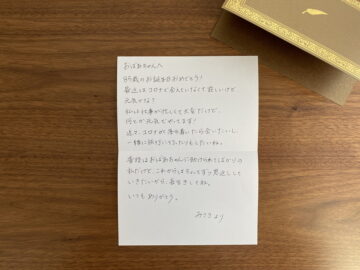 おばあちゃんへ
85歳のお誕生日おめでとう!
最近はコロナで会えていなくて寂しいけど
元気かな?
私は仕事が忙しくて大変だけど、
何とか元気でやってます!
近々、コロナが落ち着いたら会いたいし、
一緒に旅行も行ったりしたいね。
普段はおばあちゃんに助けられてばかりの
私だけど、これからはちょっとずつ恩返しして
いきたいから、長生きしてね。
いつもありがとう。
みさきより